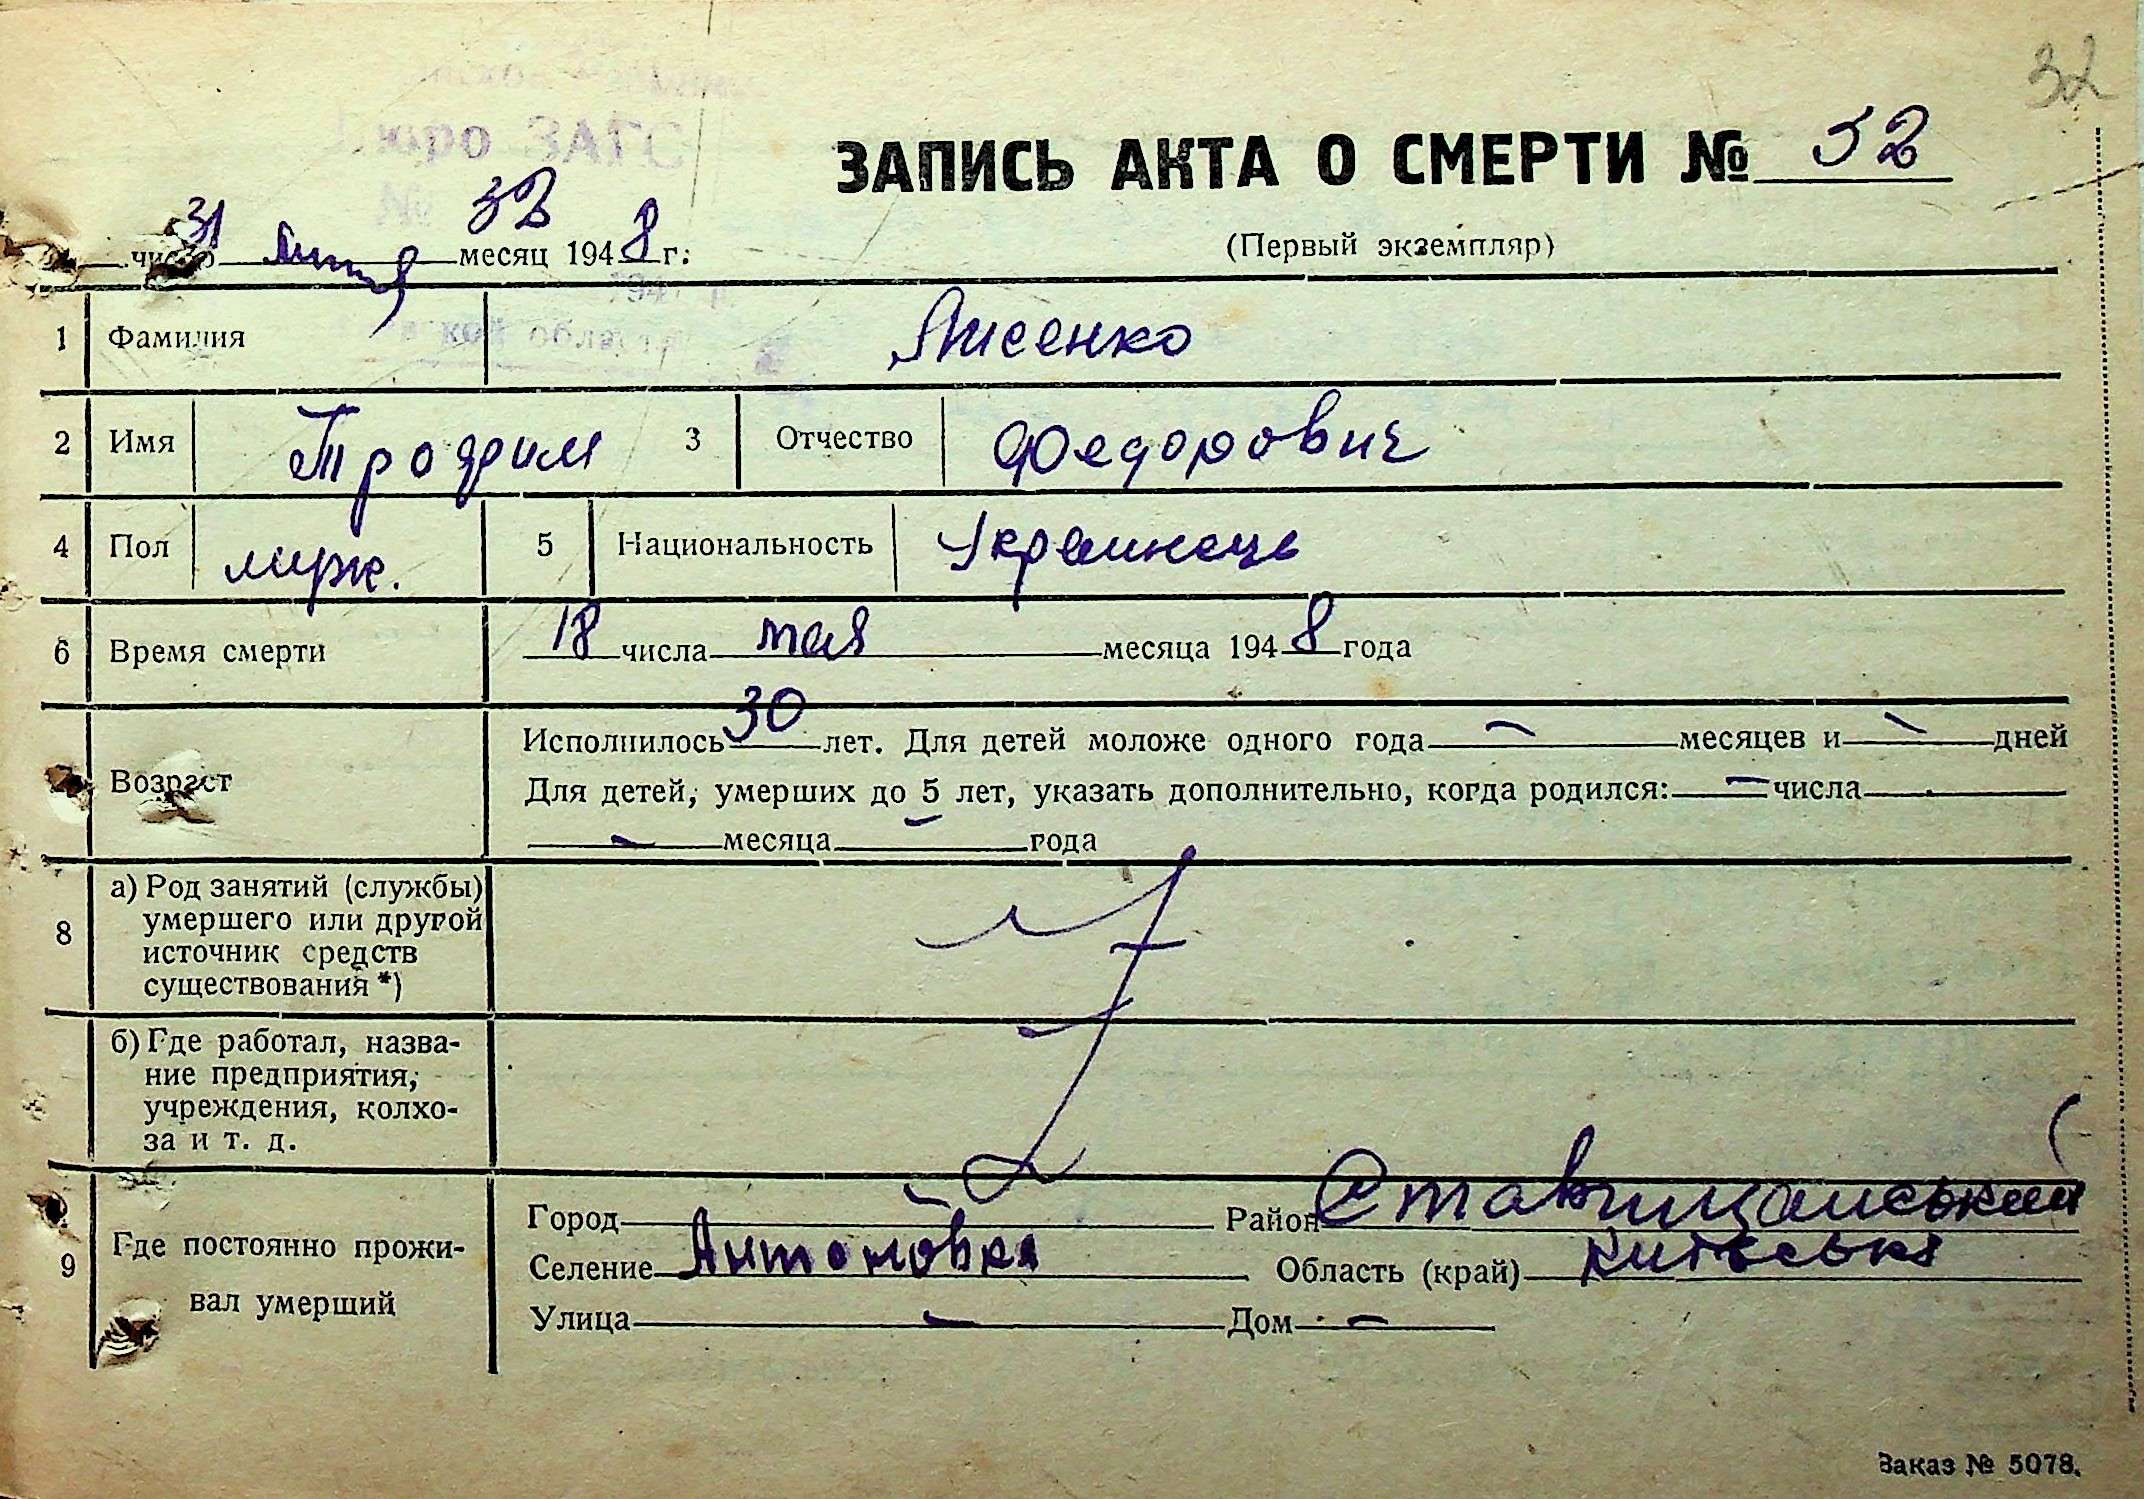 32
Бюро ЗАГС
№ 32
ЗАПИСЬ АКТА О СМЕРТИ № 52
31 число липня месяц 1948 г.
(Первый экземпляр)
1 Фамилия Лисенко
2 Имя Трофим 3 Отчество Федорович
4 Пол муж. 5 Национальность Украинець
6 Время смерти 18 числа мая месяца 1948 года
Возраст
Исполнилось 30 лет. Для детей моложе одного года — месяцев и — дней
Для детей, умерших до 5 лет, указать дополнительно, когда родился: — числа
— месяца — года
8
а) Род занятий (службы)
умершего или другой
источник средств
существования *)
б) Где работал, назва-
ние предприятия,
учреждения, колхо-
за и т. д.
9 Где постоянно прожи-
вал умерший
Город — Район Ставищанський
Селение Антоновка Область (край) Київська
Улица — Дом —
Заказ № 5078.